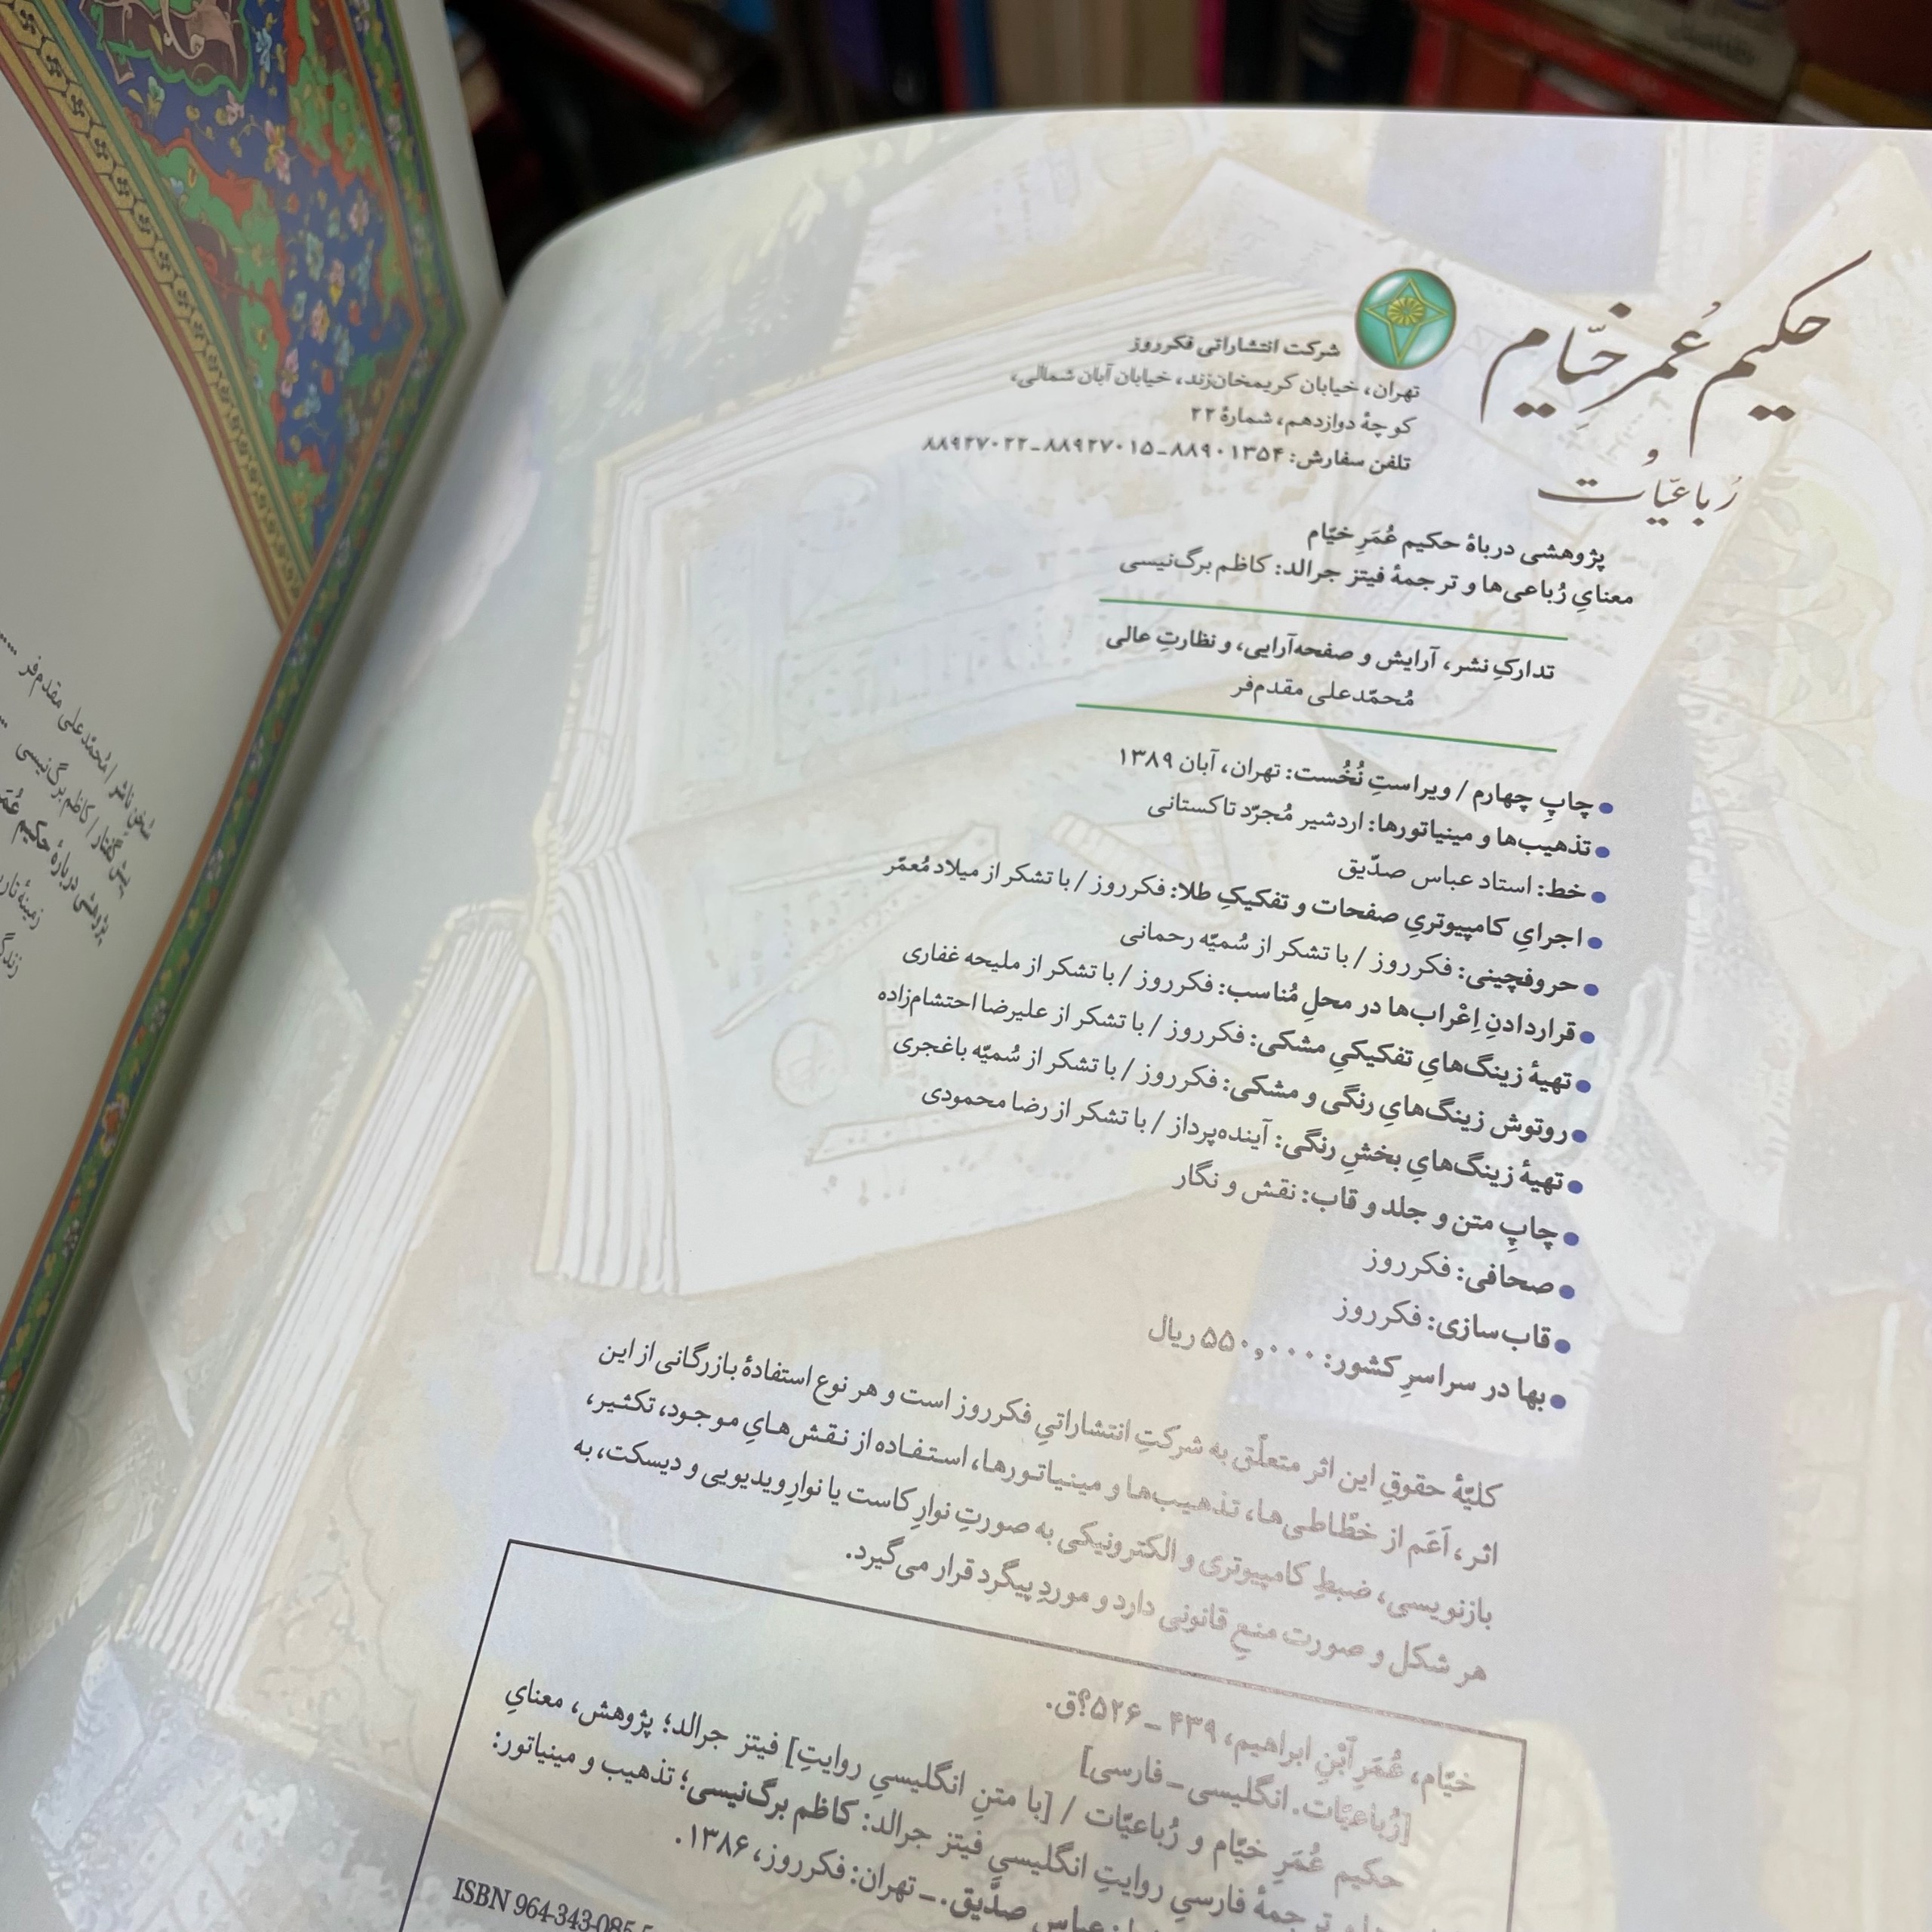 حکیم عُمر خیّام
و
رُباعیّات
شرکت انتشاراتی فکرروز
تهران، خیابان کریمخان‌زند، خیابان آبان شمالی،
کوچهٔ دوازدهم، شمارهٔ ۲۲
تلفن سفارش: ۸۸۹۰۱۳۵۴ـ۸۸۹۲۷۰۱۵ـ۸۸۹۲۷۰۲۲
پژوهشی دربارهٔ حکیم عُمَرِ خیّام
معنایِ رُباعی‌ها و ترجمهٔ فیتز جرالد: کاظم برگ‌نیسی
تدارکِ نشر، آرایش و صفحه‌آرایی، و نظارتِ عالی
مُحمّدعلی مقدم‌فر
● چاپِ چهارم / ویراستِ نُخُست: تهران، آبان ۱۳۸۹
● تذهیب‌ها و مینیاتورها: اردشیر مُجرّد تاکستانی
● خط: استاد عباس صدّیق
● اجرایِ کامپیوتریِ صفحات و تفکیکِ طلا: فکرروز / با تشکر از میلاد مُعمّر
● حروفچینی: فکرروز / با تشکر از سُمیّه رحمانی
● قراردادنِ اِعْراب‌ها در محلِ مُناسب: فکرروز / با تشکر از ملیحه غفاری
● تهیهٔ زینگ‌هایِ تفکیکیِ مشکی: فکرروز / با تشکر از علیرضا احتشام‌زاده
● روتوش زینگ‌هایِ رنگی و مشکی: فکرروز / با تشکر از سُمیّه باغجری
● تهیهٔ زینگ‌هایِ بخشِ رنگی: آینده‌پرداز / با تشکر از رضا محمودی
● چاپِ متن و جلد و قاب: نقش و نگار
● صحافی: فکرروز
● قاب‌سازی: فکرروز
● بها در سراسرِ کشور: ۵۵۰,۰۰۰ ریال
کلیّهٔ حقوقِ این اثر متعلّق به شرکتِ انتشاراتیِ فکرروز است و هر نوع استفادهٔ بازرگانی از این
اثر، اَعَم از خطّاطی‌ها، تذهیب‌ها و مینیاتورها، استفاده از نقش‌هایِ موجود، تکثیر،
بازنویسی، ضبطِ کامپیوتری و الکترونیکی به صورتِ نوارِ کاست یا نوارِ ویدیویی و دیسکت، به
هر شکل و صورت منعِ قانونی دارد و موردِ پیگرد قرار می‌گیرد.
خیّام، عُمَرِ اَبْنِ ابراهیم، ۴۳۹ ـ ۵۲۶؟ق.
[رُباعیّات. انگلیسی ـ فارسی]
حکیم عُمَرِ خیّام و رُباعیّات / [با متنِ انگلیسیِ روایتِ] فیتز جرالد؛ پژوهش، معنایِ
و ترجمهٔ فارسیِ روایتِ انگلیسیِ فیتز جرالد: کاظم برگ‌نیسی؛ تذهیب و مینیاتور:
عباس صدّیق. ـ تهران: فکرروز، ۱۳۸۶.
ISBN 964-343-085-5
سُخنِ ناشر / مُحمّدعلی مقدم‌فر ....
پیش‌گفتار / کاظم برگ‌نیسی ...
پژوهشی دربارهٔ حکیم عُمَر